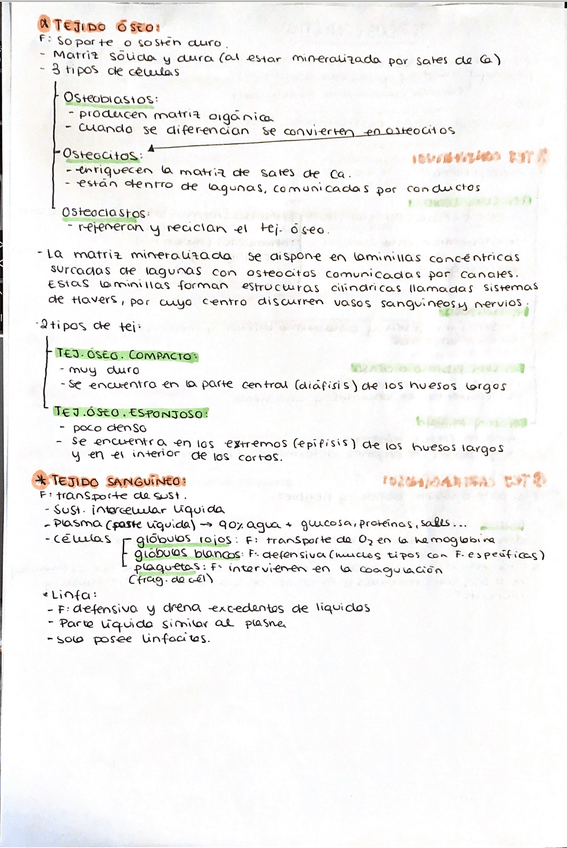 * TEJIDO ÓSEO:
F: Soporte o sostén duro.
- Matriz sólida y dura (al estar mineralizada por sales de Ca)
- 3 tipos de células
Osteoblastos:
- producen matriz orgánica
- cuando se diferencian se convierten en osteocitos
Osteocitos:
- enriquecen la matriz de sales de Ca.
- están dentro de lagunas, comunicadas por conductos
Osteoclastos:
- regeneran y reciclan el tej. óseo.
- La matriz mineralizada se dispone en laminillas concéntricas
surcadas de lagunas con osteocitos comunicadas por canales.
Estas laminillas forman estructuras cilíndricas llamadas sistemas
de Havers, por cuyo centro discurren vasos sanguíneos y nervios.
- 2 tipos de tej:
TEJ. ÓSEO. COMPACTO:
- muy duro
- Se encuentra en la parte central (diáfisis) de los huesos largos
TEJ. ÓSEO. ESPONJOSO:
- poco denso
- se encuentra en los extremos (epífisis) de los huesos largos
y en el interior de los cortos.
* TEJIDO SANGUÍNEO:
F: transporte de sust.
- Sust. intercelular líquida
- Plasma (parte líquida) → 90% agua + glucosa, proteínas, sales...
- células
glóbulos rojos: F: transporte de O2 en la hemoglobina
glóbulos blancos: F: defensiva (muchos tipos con F. específicas)
plaquetas: F: intervienen en la coagulación
(frag. de cél)
* Linfa:
- F: defensiva y drena excedentes de líquidos
- Parte líquida similar al plasma
- solo posee linfocitos.